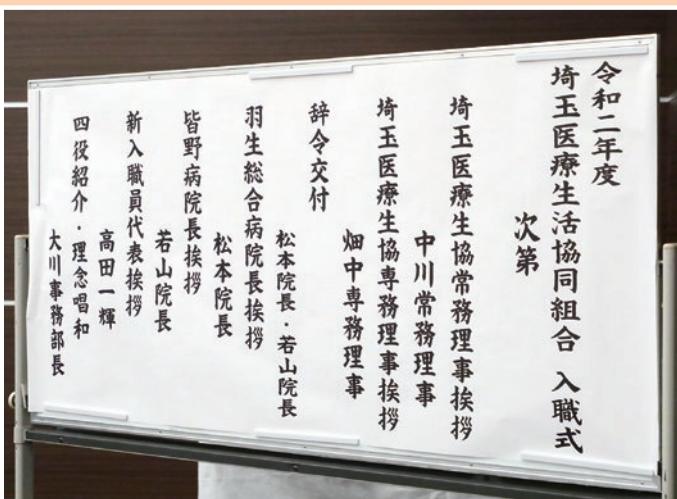 令和二年度
埼玉医療生活協同組合 入職式
次第
埼玉医療生協常務理事挨拶
中川常務理事
埼玉医療生協専務理事挨拶
畑中専務理事
辞令交付
松本院長・若山院長
羽生総合病院長挨拶
松本院長
皆野病院長挨拶
若山院長
新入職員代表挨拶
高田一輝
四役紹介・理念唱和
大川事務部長